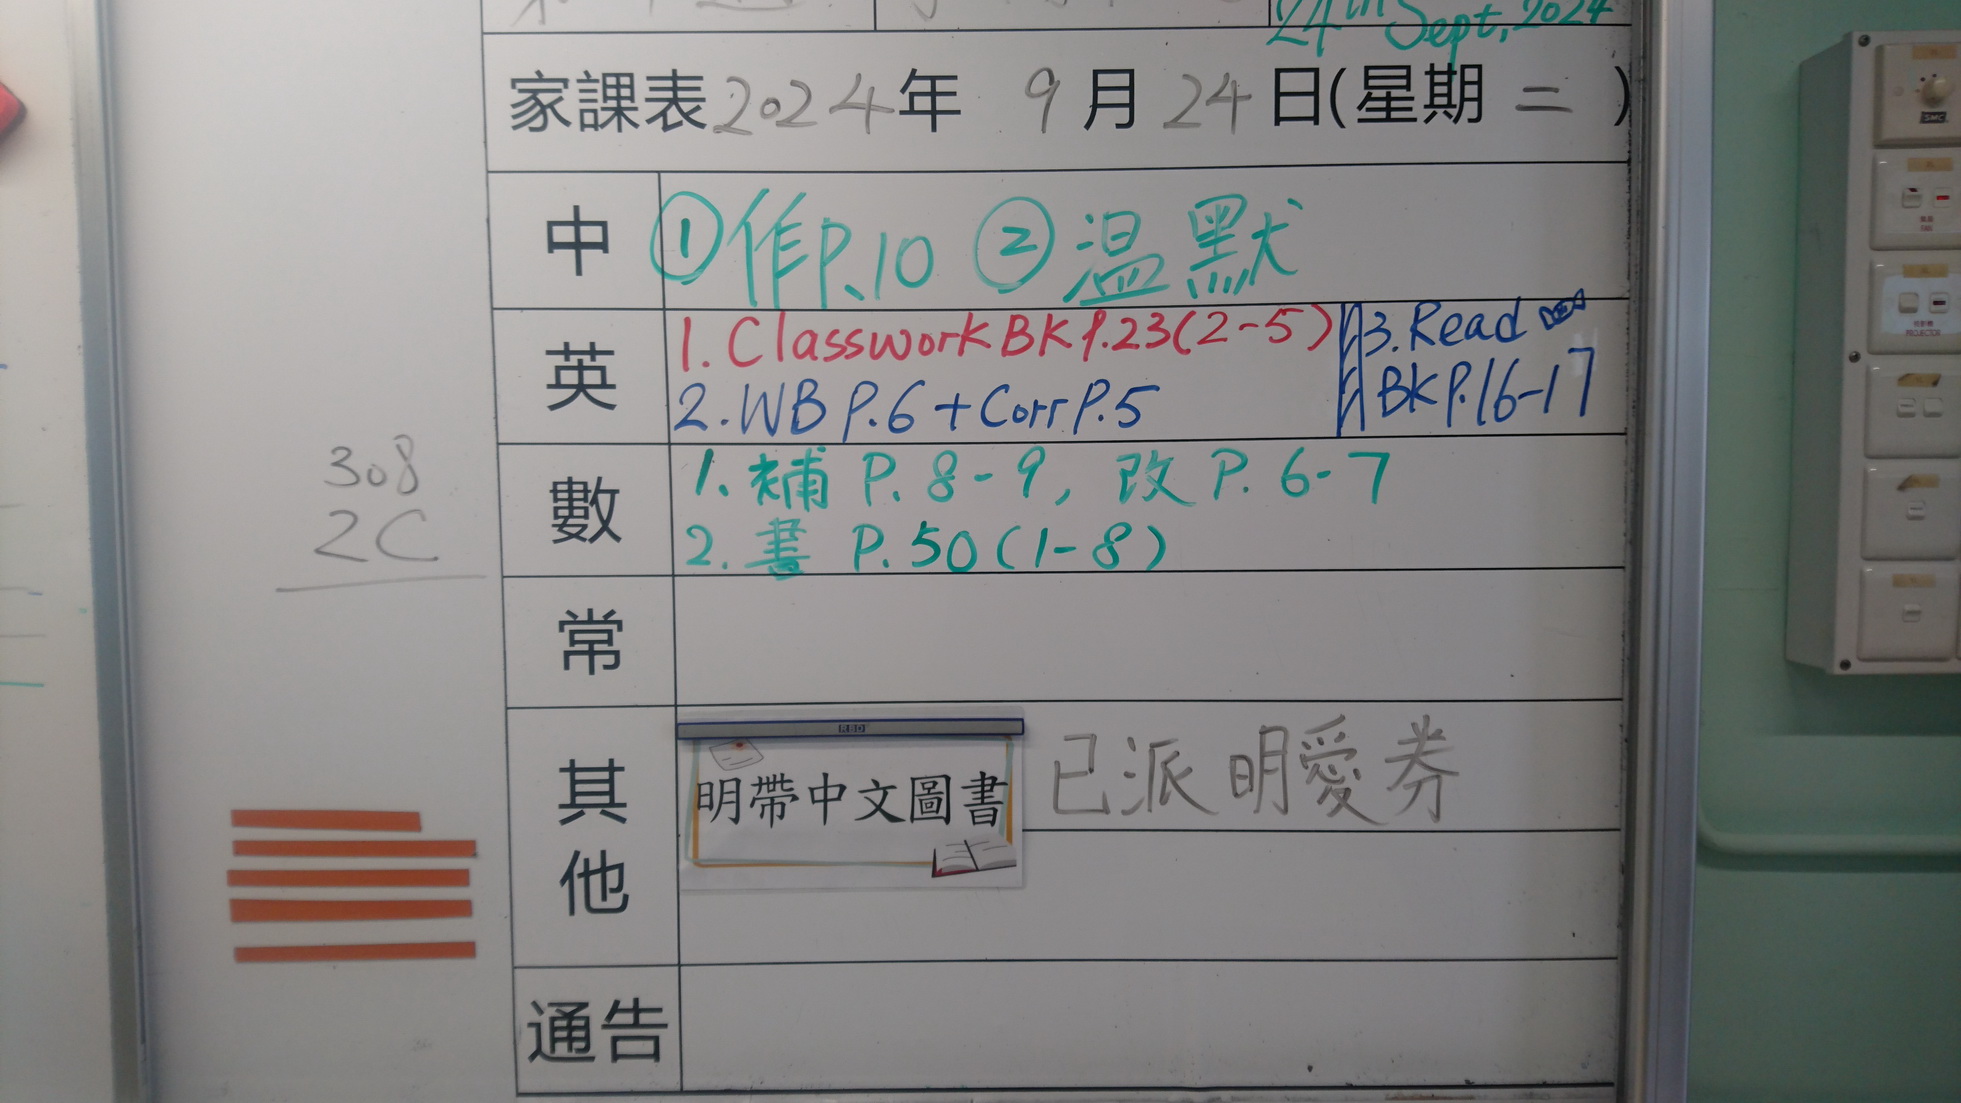 24th Sept, 2024
家課表2024年 9月24日(星期二)
中 ①作P.10 ②溫默
英 1. Classwork BK P.23(2-5)
2. WB P.6 + Corr P.5
3. Read
BK P.16-17
數 1. 補 P. 8-9, 改 P. 6-7
2. 書 P. 50 (1-8)
308
2C
常
其他 明帶中文圖書 已派明愛券
通告